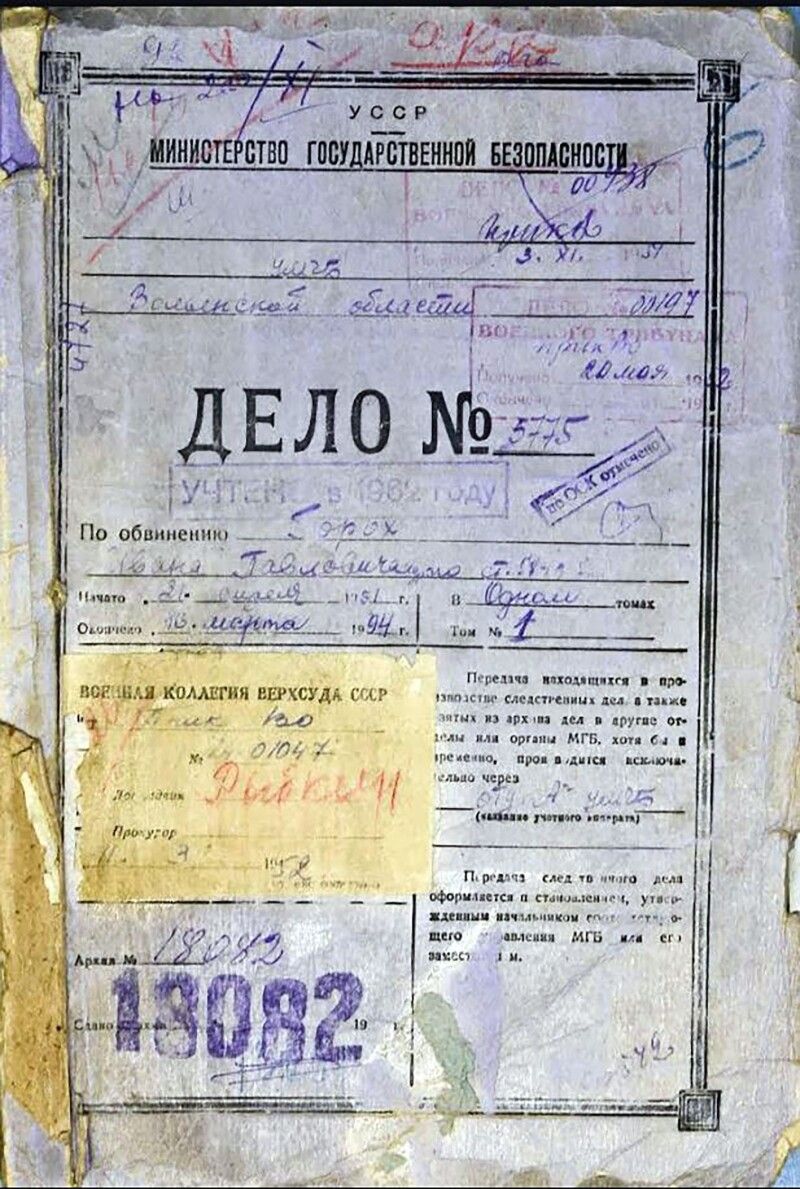 УССР
МИНИСТЕРСТВО ГОСУДАРСТВЕННОЙ БЕЗОПАСНОСТИ
ДЕЛО № 00438
3. XI.
УМГБ
Волынской области
ДЕЛО № 00197
ВОЕННОГО ТРИБУНАЛА
ПрикВО
Получено 20 мая 1952
Окончено
ДЕЛО № 5775
УЧТЕНО в 1962 году
по ОСК отмечено
По обвинению Горох
Ивана Павловича по ст.
Начато 21. апреля 1951 г.
В Одном томах
Окончено 18. марта 1994 г.
Том № 1
ВОЕННАЯ КОЛЛЕГИЯ ВЕРХСУДА СССР
Прик ВО
№ 01047
Докладчик
Прокурор
3 1952
Передача находящихся в про-
изводстве следственных дел, а также
взятых из архива дел в другие от-
делы или органы МГБ, хотя бы и
временно, производится исключи-
тельно через
отд "А" УМГБ
(название учетного аппарата)
Передача следственного дела
оформляется постановлением, утвер-
жденным начальником соответствую-
щего управления МГБ или его
заместителем.
Архив № 18082
18082
Сдано в архив 19 г.